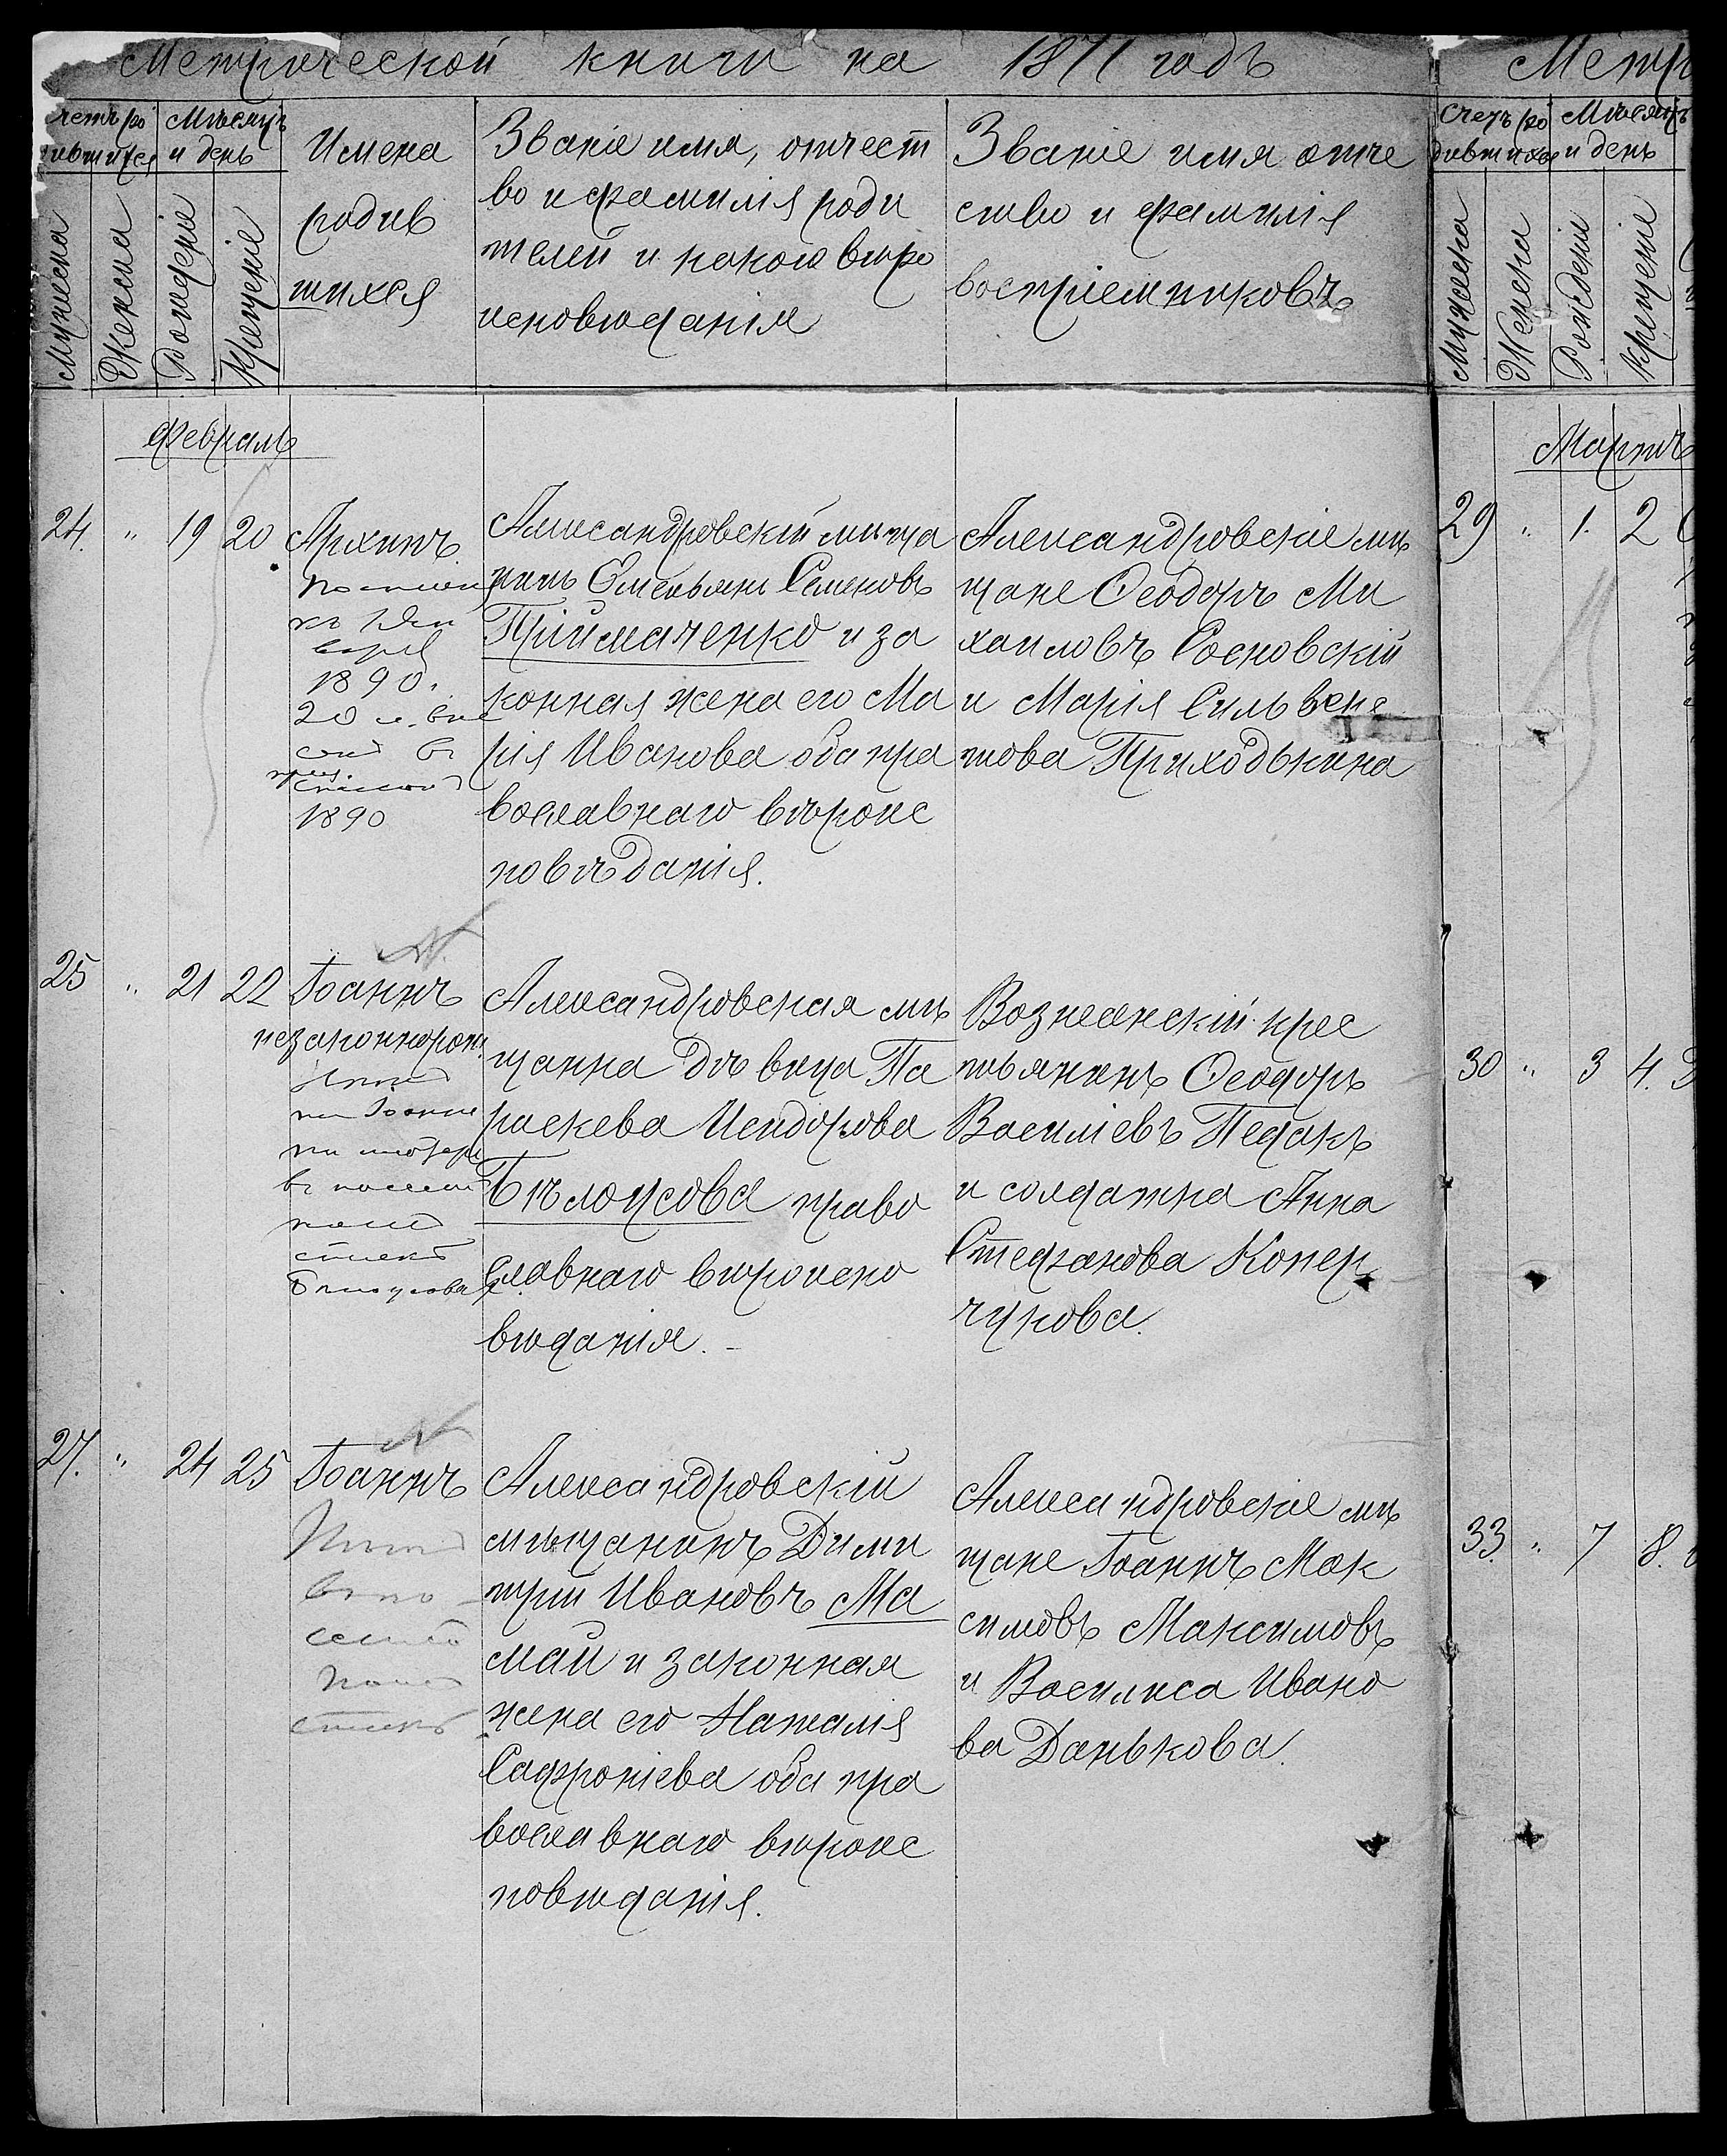 Метрической книги на 1871 годъ
Имена
родив
шихся
Званіе имя, отчест
во и фамилія роди
телей и какого вѣро
исповѣданія
Званіе имя отче
ство и фамилія
воспріемниковъ
Мѣсяцъ
и день
Мужеска
Женска
Рожденіе
Крещеніе
Февраль
24. " 19 20 Архипъ
1890
1890
Александровскій мѣща
нинъ Емельянъ Семеновъ
Прійматченко и за
конная жена его Ма
рія Иванова оба пра
вославнаго вѣроис
повѣданія.
Александровскіе мѣ
щане Ѳеодоръ Ми
хаиловъ Сосновскій
и Марія Сильвес
това Приходькина
25 " 21 22 Іоаннъ
незаконнорож.
Александровская мѣ
щанка дѣвица Па
раскева Исидорова
Бѣлоусова право
славнаго вѣроиспо
вѣданія.
Вознесенскій крес
тьянинъ Ѳеодоръ
Василіевъ Педакъ
и солдатка Анна
Стефанова Копер
чукова.
27. " 24 25 Іоаннъ
Александровскій
мѣщанинъ Дими
трій Ивановъ Ма
май и законная
жена его Наталія
Сафроніева оба пра
вославнаго вѣроис
повѣданія.
Александровскіе мѣ
щане Іоаннъ Мак
симовъ Максимовъ
и Василиса Ивано
ва Данькова.
Метр
Счетъ ро
дившихся
Мѣсяцъ
и день
Мужеска
Женска
Рожденіе
Крещеніе
Мартъ
29 " 1. 2
30 " 3 4.
33. " 7 8.